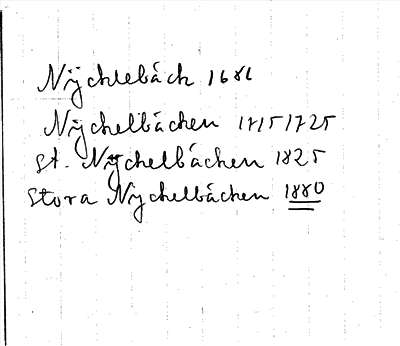 Nÿchlebäck 1686
Nÿchelbäcken 1715 1725
St. Nÿchelbäcken 1825
Stora Nÿchelbäcken 1880